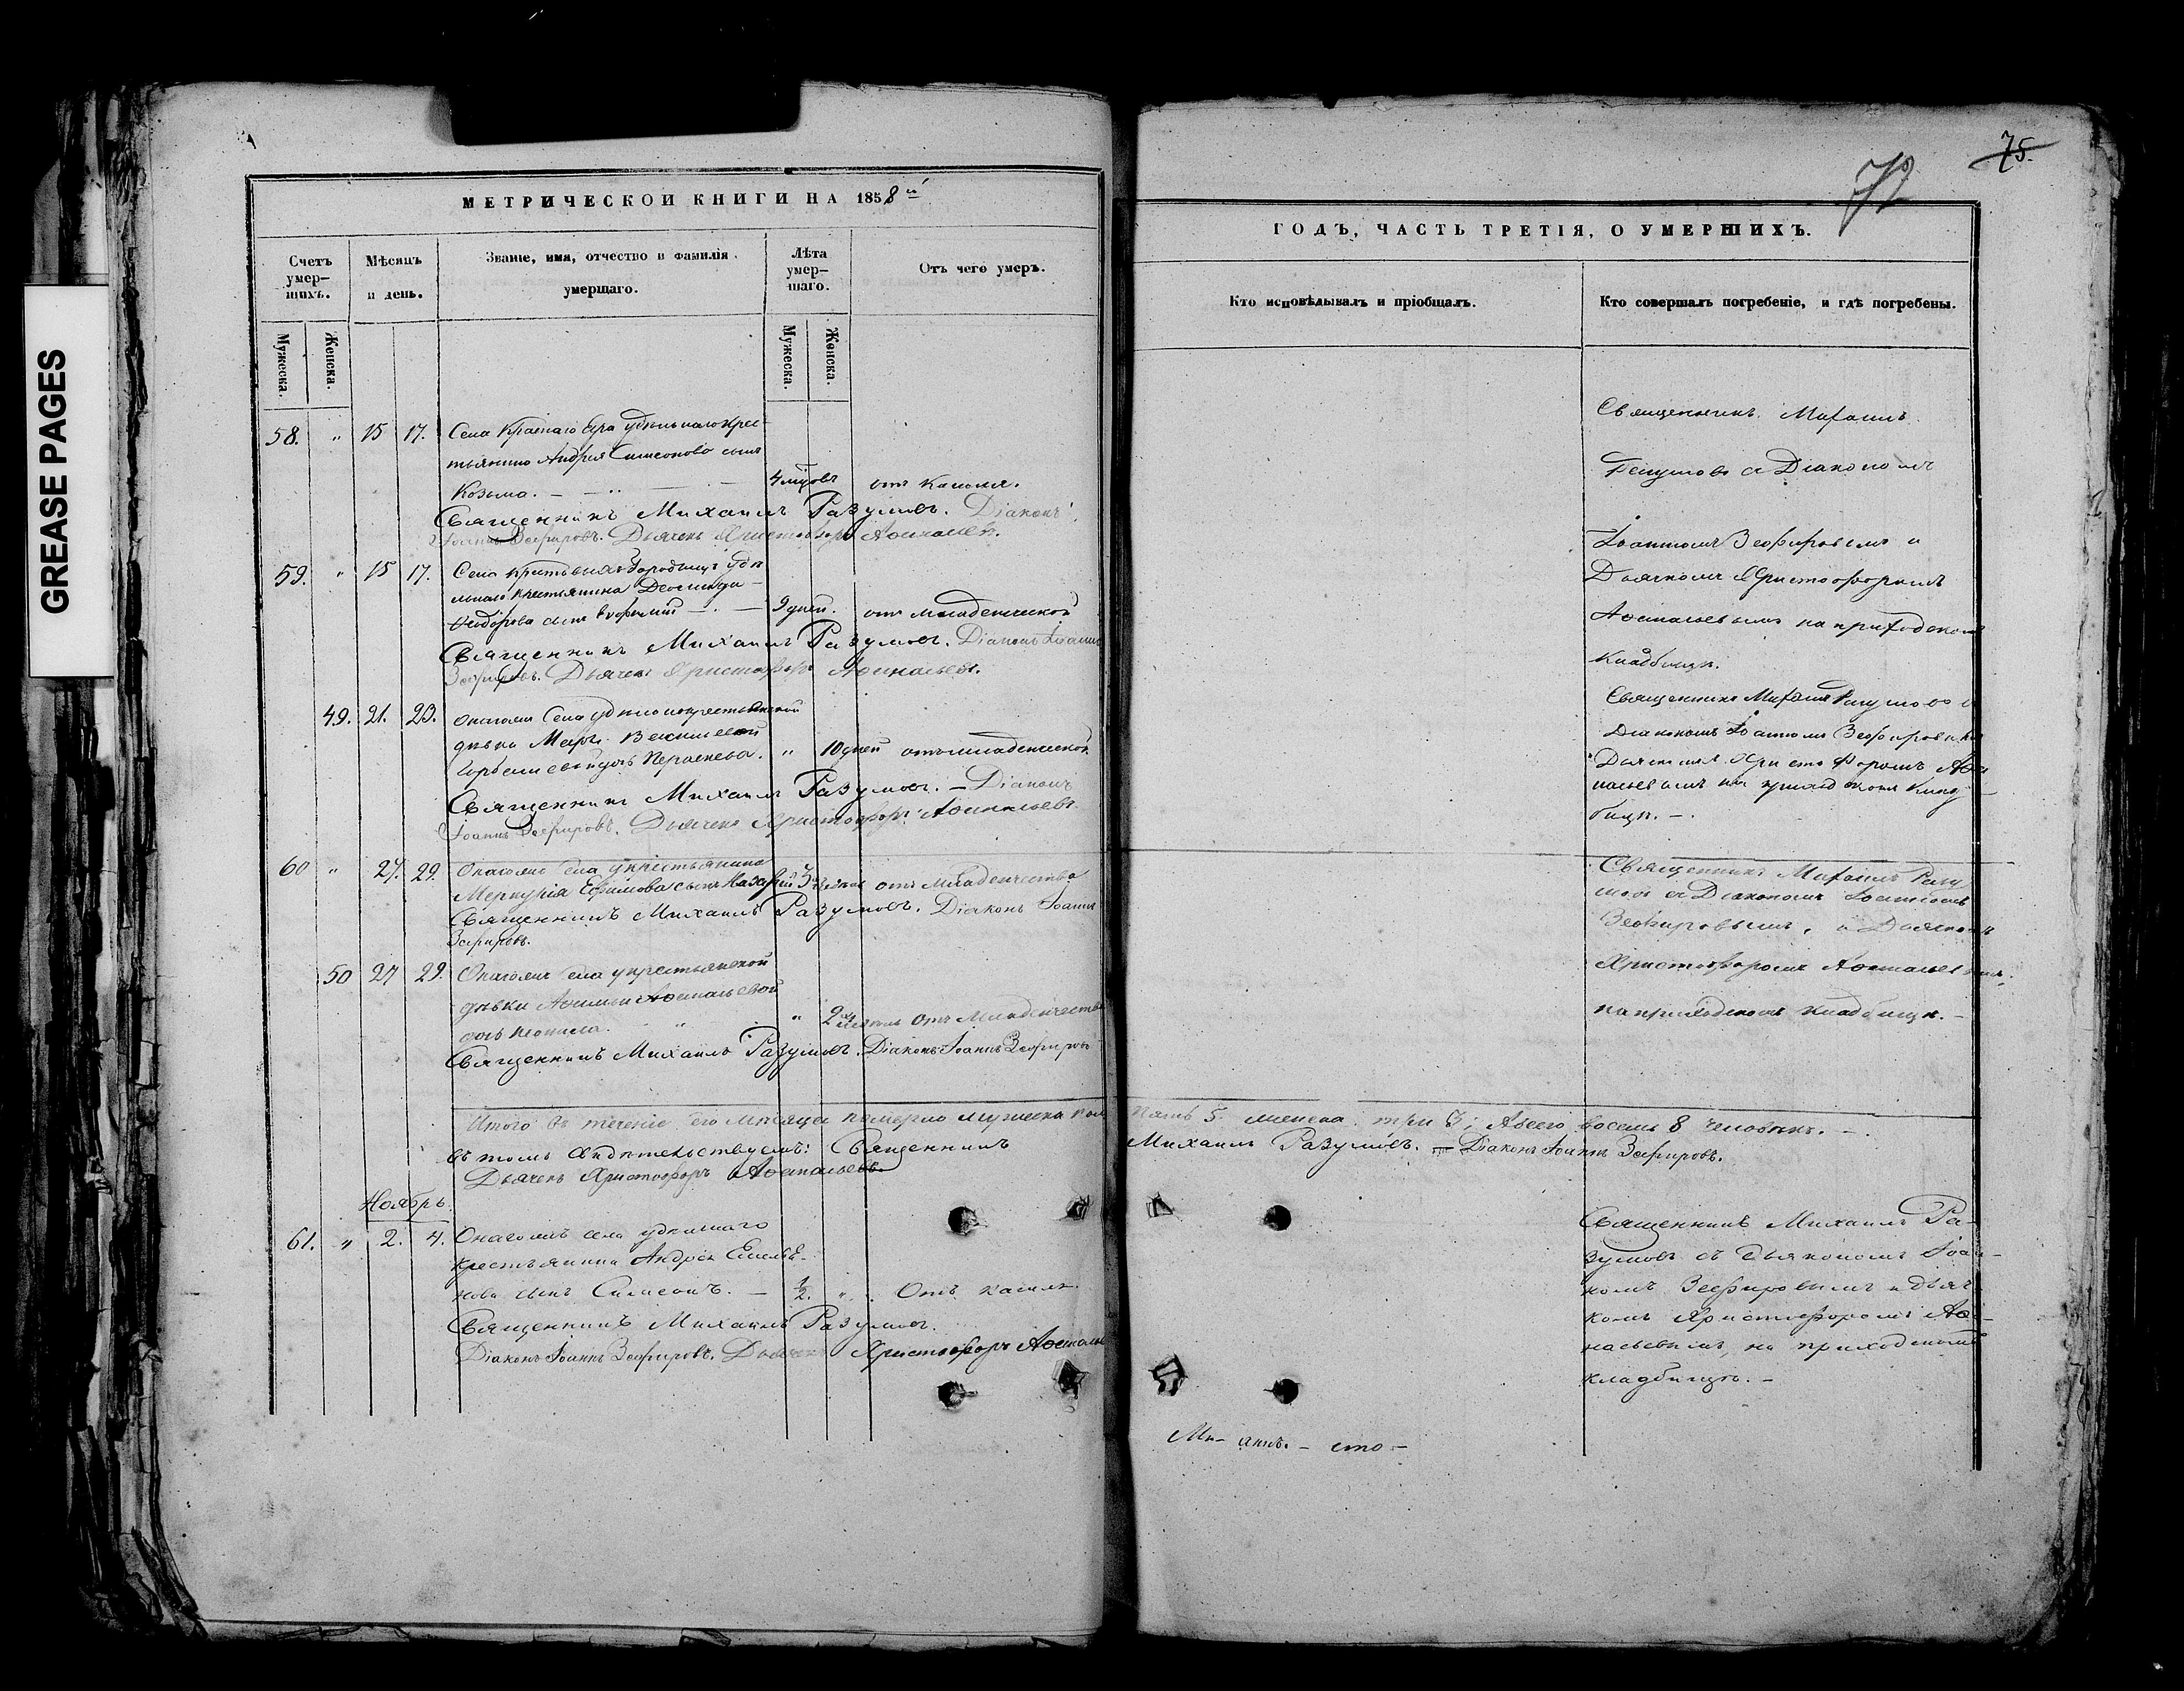 GREASE PAGES
75.
72
МЕТРИЧЕСКОЙ КНИГИ НА 1858й
ГОДЪ, ЧАСТЬ ТРЕТІЯ, О УМЕРШИХЪ.
Счетъ умер-шихъ.
Мѣсяцъ и день.
Званіе, имя, отчество и фамилія умершаго.
Лѣта умер-шаго.
Отъ чего умеръ.
Кто исповѣдывалъ и пріобщалъ.
Кто совершалъ погребеніе, и гдѣ погребены.
Мужеска.
Женска.
Мужеска.
Женска.
58. " 15 17. Села Краснаго Яра удѣльнаго крес-
тьянина Андрея Симеонова сынъ
Козьма. 4 отъ кашля.
Священникъ Михаилъ Разумовъ. Діаконъ
Іоаннъ Зефировъ. Дьячекъ Христофоръ Аѳанасьевъ.
59. " 15 17. Села Городищъ удѣ-
льнаго крестьянина
Ѳеодорова сынъ 9 дней. отъ младенческой
Священникъ Михаилъ Разумовъ. Діаконъ Іоаннъ
Зефировъ. Дьячекъ Христофоръ Аѳанасьевъ.
49. 21. 23. Онагожъ Села крестьянской
дѣвки
" 10 дней отъ младенческой
Священникъ Михаилъ Разумовъ. – Діаконъ
Іоаннъ Зефировъ. Дьячекъ Христофоръ Аѳанасьевъ.
60 " 27. 29. Онагожъ села у крестьянина
Меркурія Ефимова сынъ Назарій 3 отъ младенчества
Священникъ Михаилъ Разумовъ. Діаконъ Іоаннъ
Зефировъ.
50 27 29. Онагожъ села у крестьянской
дѣвки Аѳанасьевой
дочь " 2 отъ младенчества
Священникъ Михаилъ Разумовъ. Діаконъ Іоаннъ Зефировъ
Итого въ теченіе сего мѣсяца померло мужеска пола пять 5. женска три 3; а всего восемь 8 человѣкъ. –
въ томъ свидѣтельствуемъ: Священникъ Михаилъ Разумовъ. – Діаконъ Іоаннъ Зефировъ.
Дьячекъ Христофоръ Аѳанасьевъ
Ноябрь
61. " 2. 4. Онагожъ села удѣльнаго
крестьянина Андрея Емелья-
нова сынъ Симеонъ. – 1/2. " Отъ кашля.
Священникъ Михаилъ Разумовъ.
Діаконъ Іоаннъ Зефировъ. Дьячекъ Христофоръ Аѳанасье
Священникъ Михаилъ
Разумовъ съ Діакономъ
Іоанномъ Зефировымъ и
Дьячкомъ Христофоромъ
Аѳанасьевымъ на приходскомъ
кладбищѣ.
Священникъ Михаилъ Разумовъ с
Діакономъ Іоанномъ Зефировымъ
Дьячкомъ Христофоромъ Аѳа
насьевымъ на приходскомъ клад
бищѣ. –
Священникъ Михаилъ Разу
мовъ съ Діакономъ Іоанномъ
Зефировымъ, и Дьячкомъ
Христофоромъ Аѳанасьевымъ
на приходскомъ кладбищѣ. –
Священникъ Михаилъ Ра-
зумовъ съ Дьякономъ Іоан-
номъ Зефировымъ и дьяч-
комъ Христофоромъ Аѳа-
насьевымъ, на приходскомъ
кладбищѣ. –